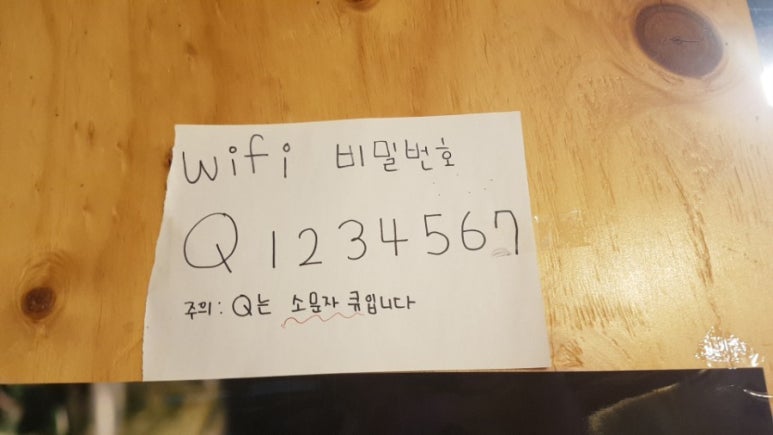 wifi 비밀번호
Q 1234567
주의 : Q는 소문자 큐입니다